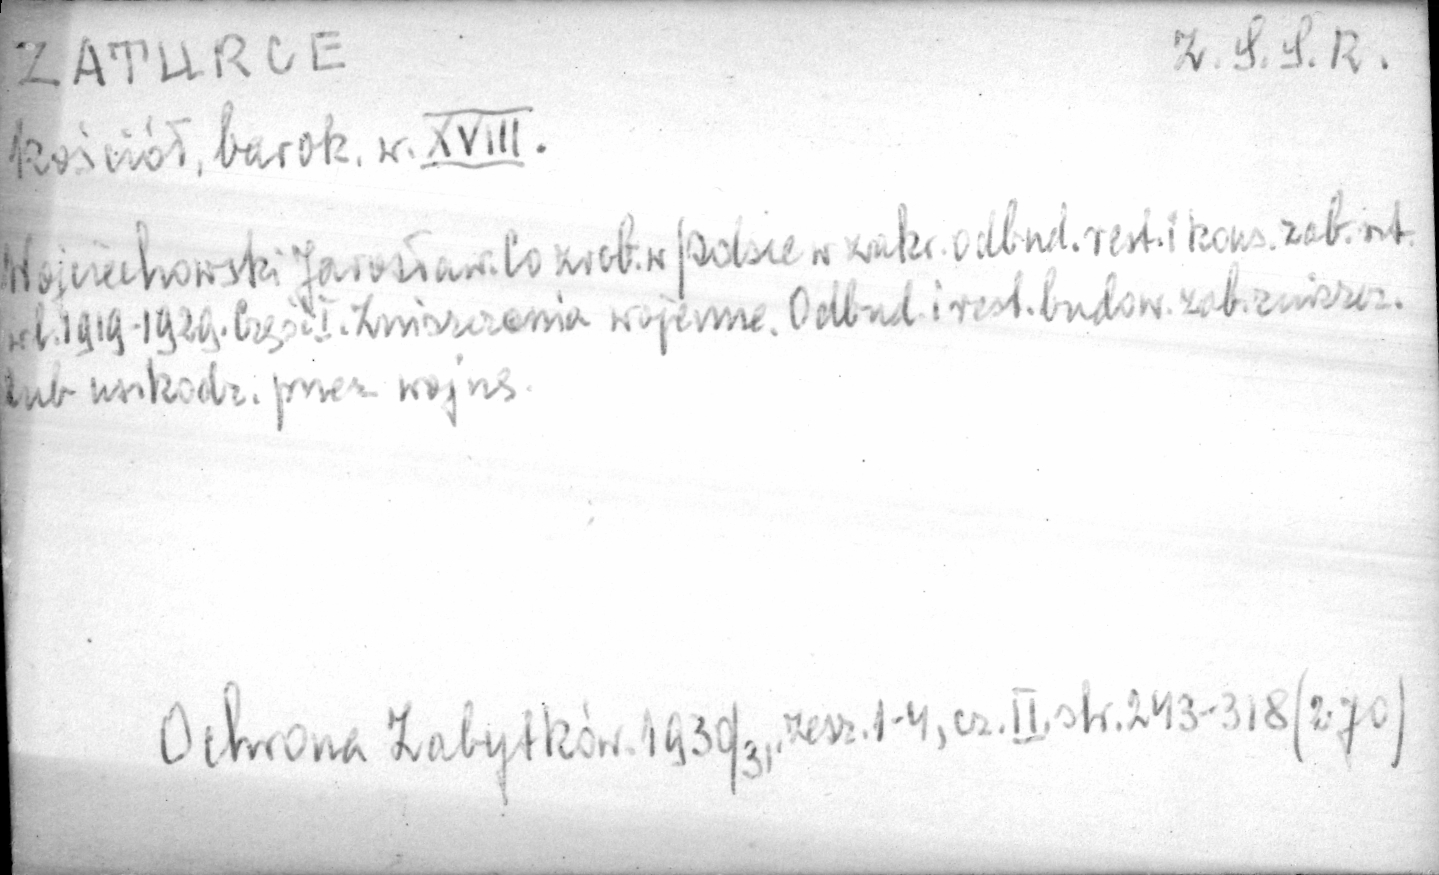 ZATURCE
Z.S.S.R.
Kościół, barok. w. XVIII.
Wojciechowski Jarosław. Co zrob. w Polsce w zakr. odbud. rest. i kons. zab. szt.
w l. 1919-1929. Część I. Zniszczenia wojenne. Odbud. i rest. budow. zab. zniszcz.
lub uszkodz. przez wojnę.
Ochrona Zabytków. 1930/31, zesz. 1-4, cz. II, str. 243-318 (270)